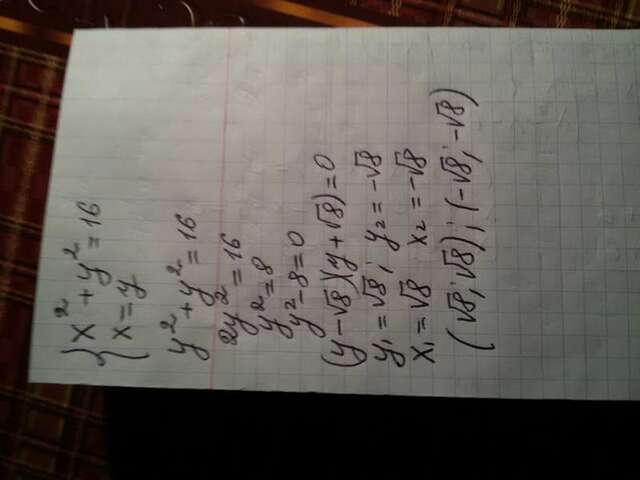 { x² + y² = 16
x = y
y² + y² = 16
2y² = 16
y² = 8
y² - 8 = 0
(y - √8)(y + √8) = 0
y₁ = √8; y₂ = -√8
x₁ = √8 x₂ = -√8
(√8; √8); (-√8; -√8)